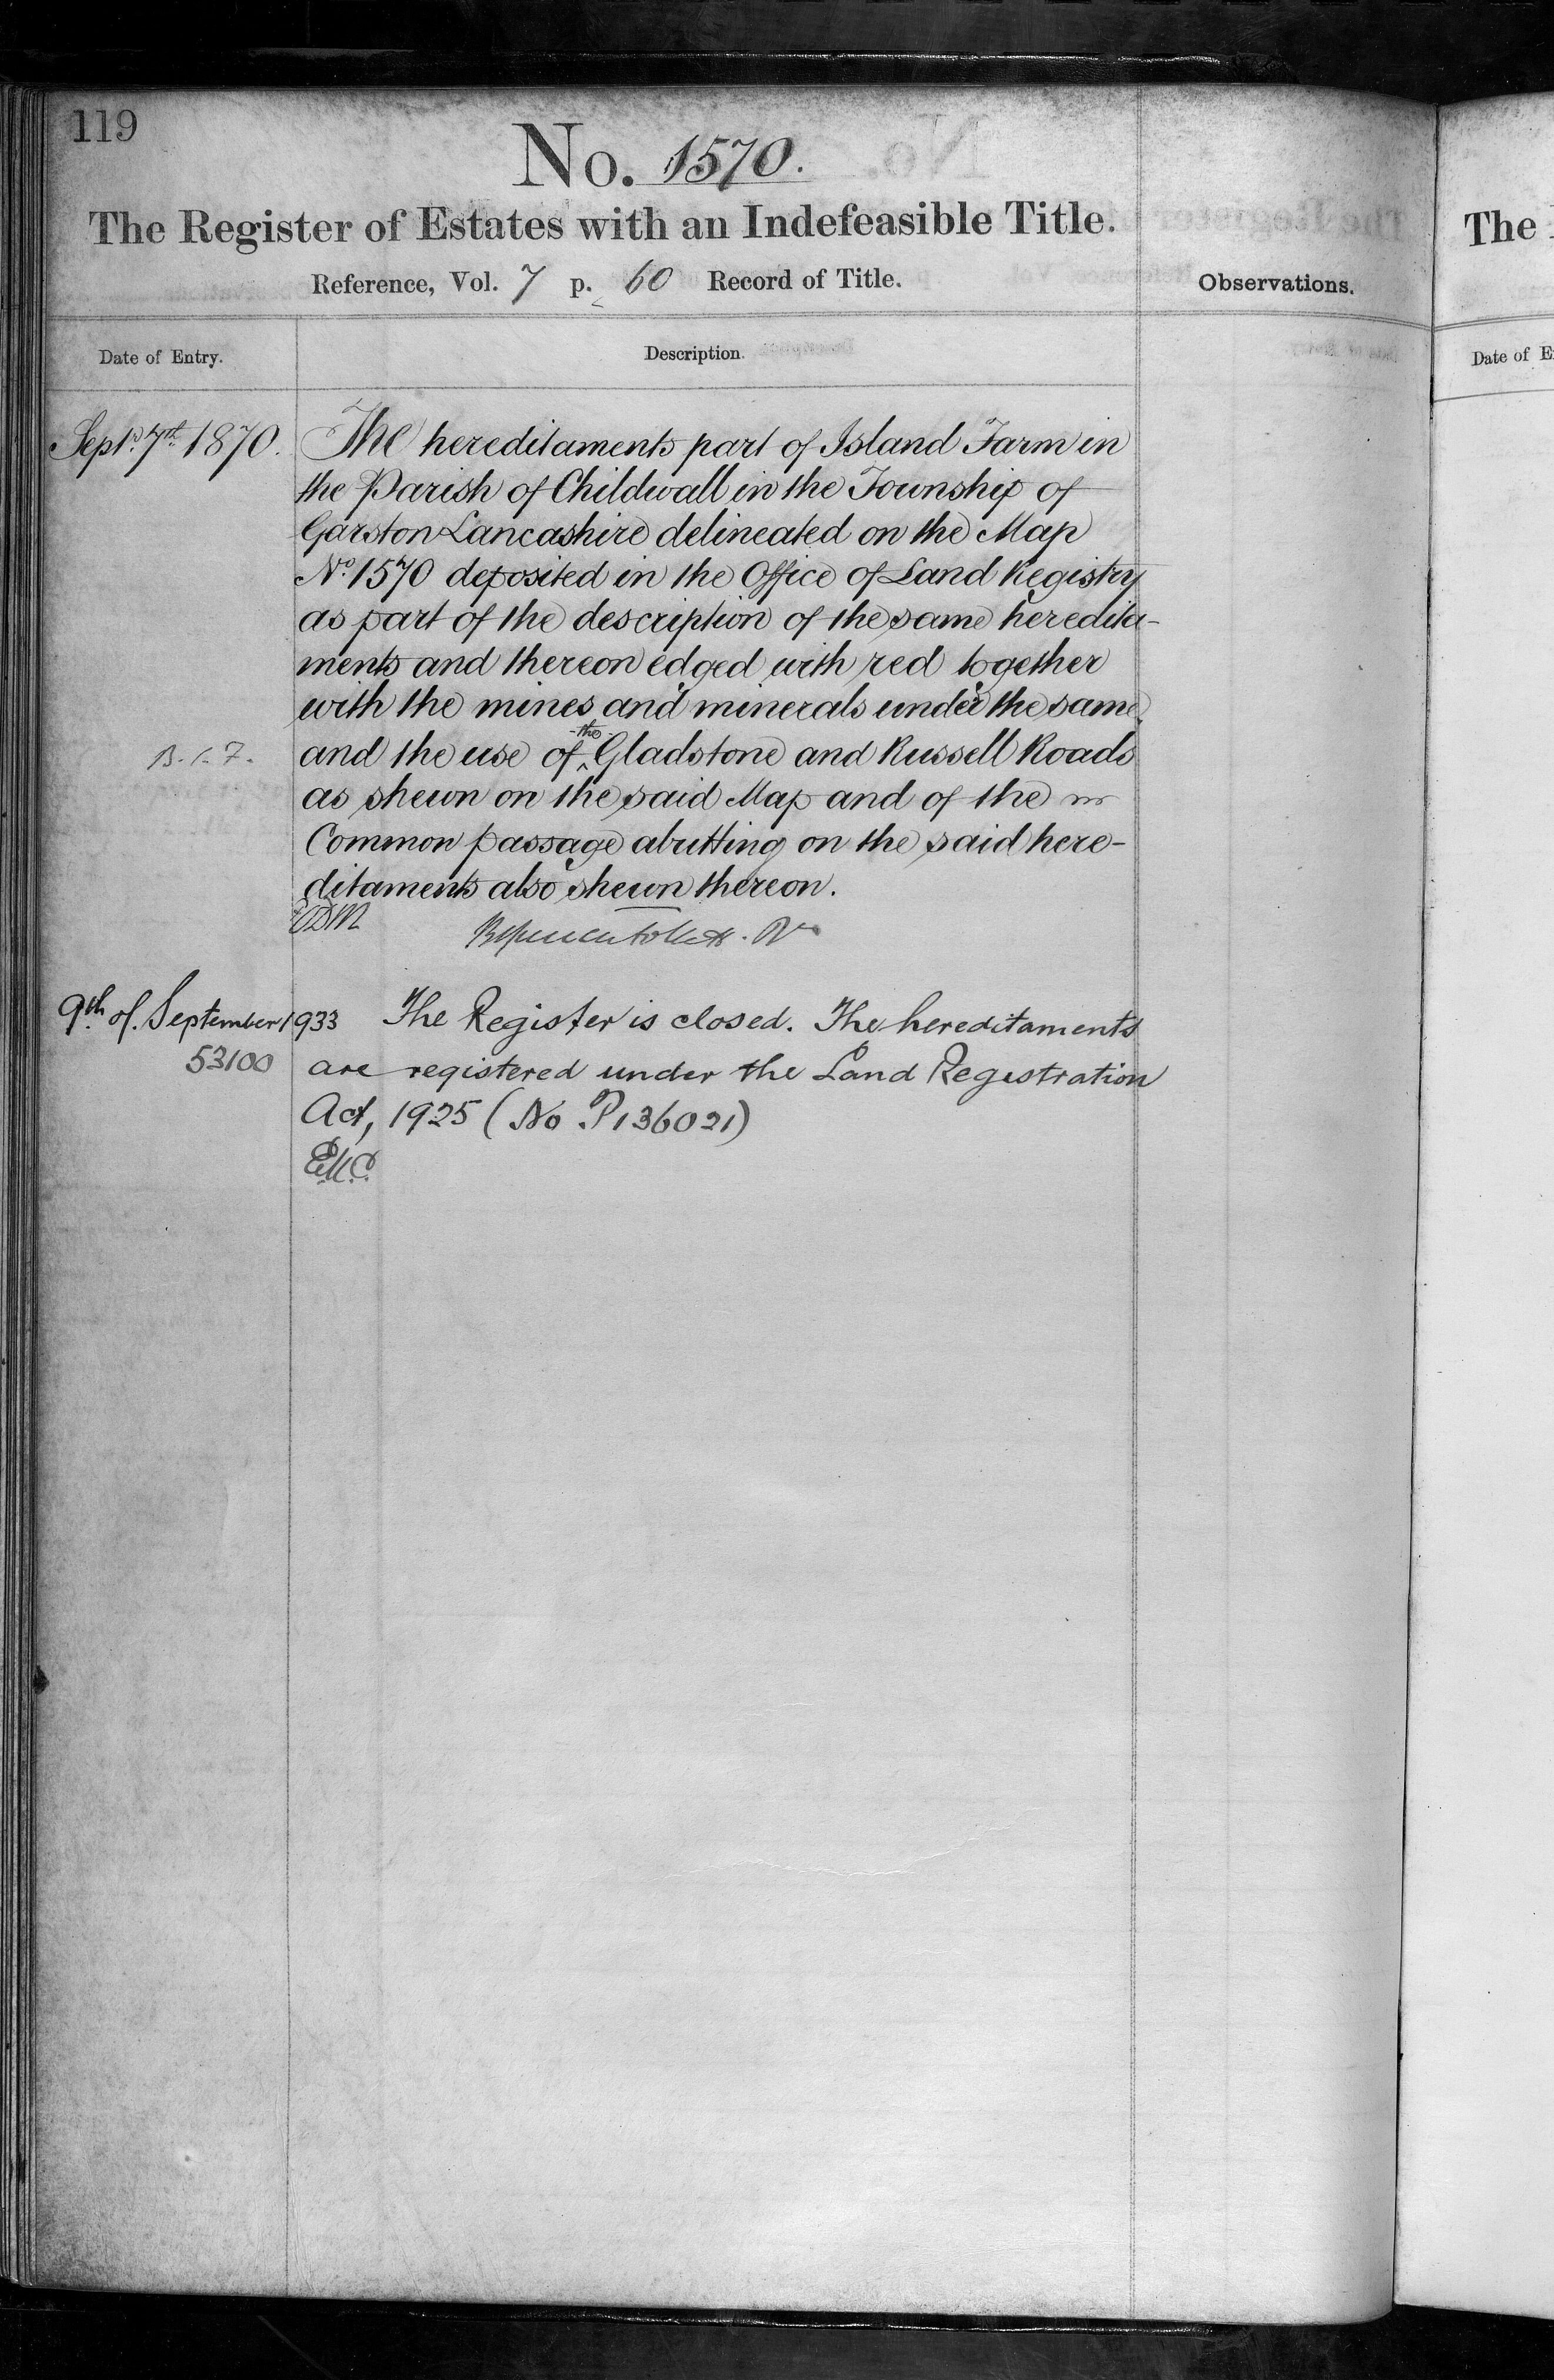 119
No. 1570.
The Register of Estates with an Indefeasible Title.
Reference, Vol. 7 p. 60 Record of Title.
Observations.
Date of Entry.
Description.
Sept. 7th 1870.
The hereditaments part of Island Farm in
the Parish of Childwall in the Township of
Garston Lancashire delineated on the Map
No. 1570 deposited in the Office of Land Registry
as part of the description of the same heredita-
ments and thereon edged with red together
with the mines and minerals under the same
and the use of the Gladstone and Russell Roads
as shewn on the said Map and of the
Common passage abutting on the said here-
ditaments also shewn thereon.
9th of September 1933 The Register is closed. The hereditaments
53100
are registered under the Land Registration
Act, 1925 (No P136021)
The
Date of E